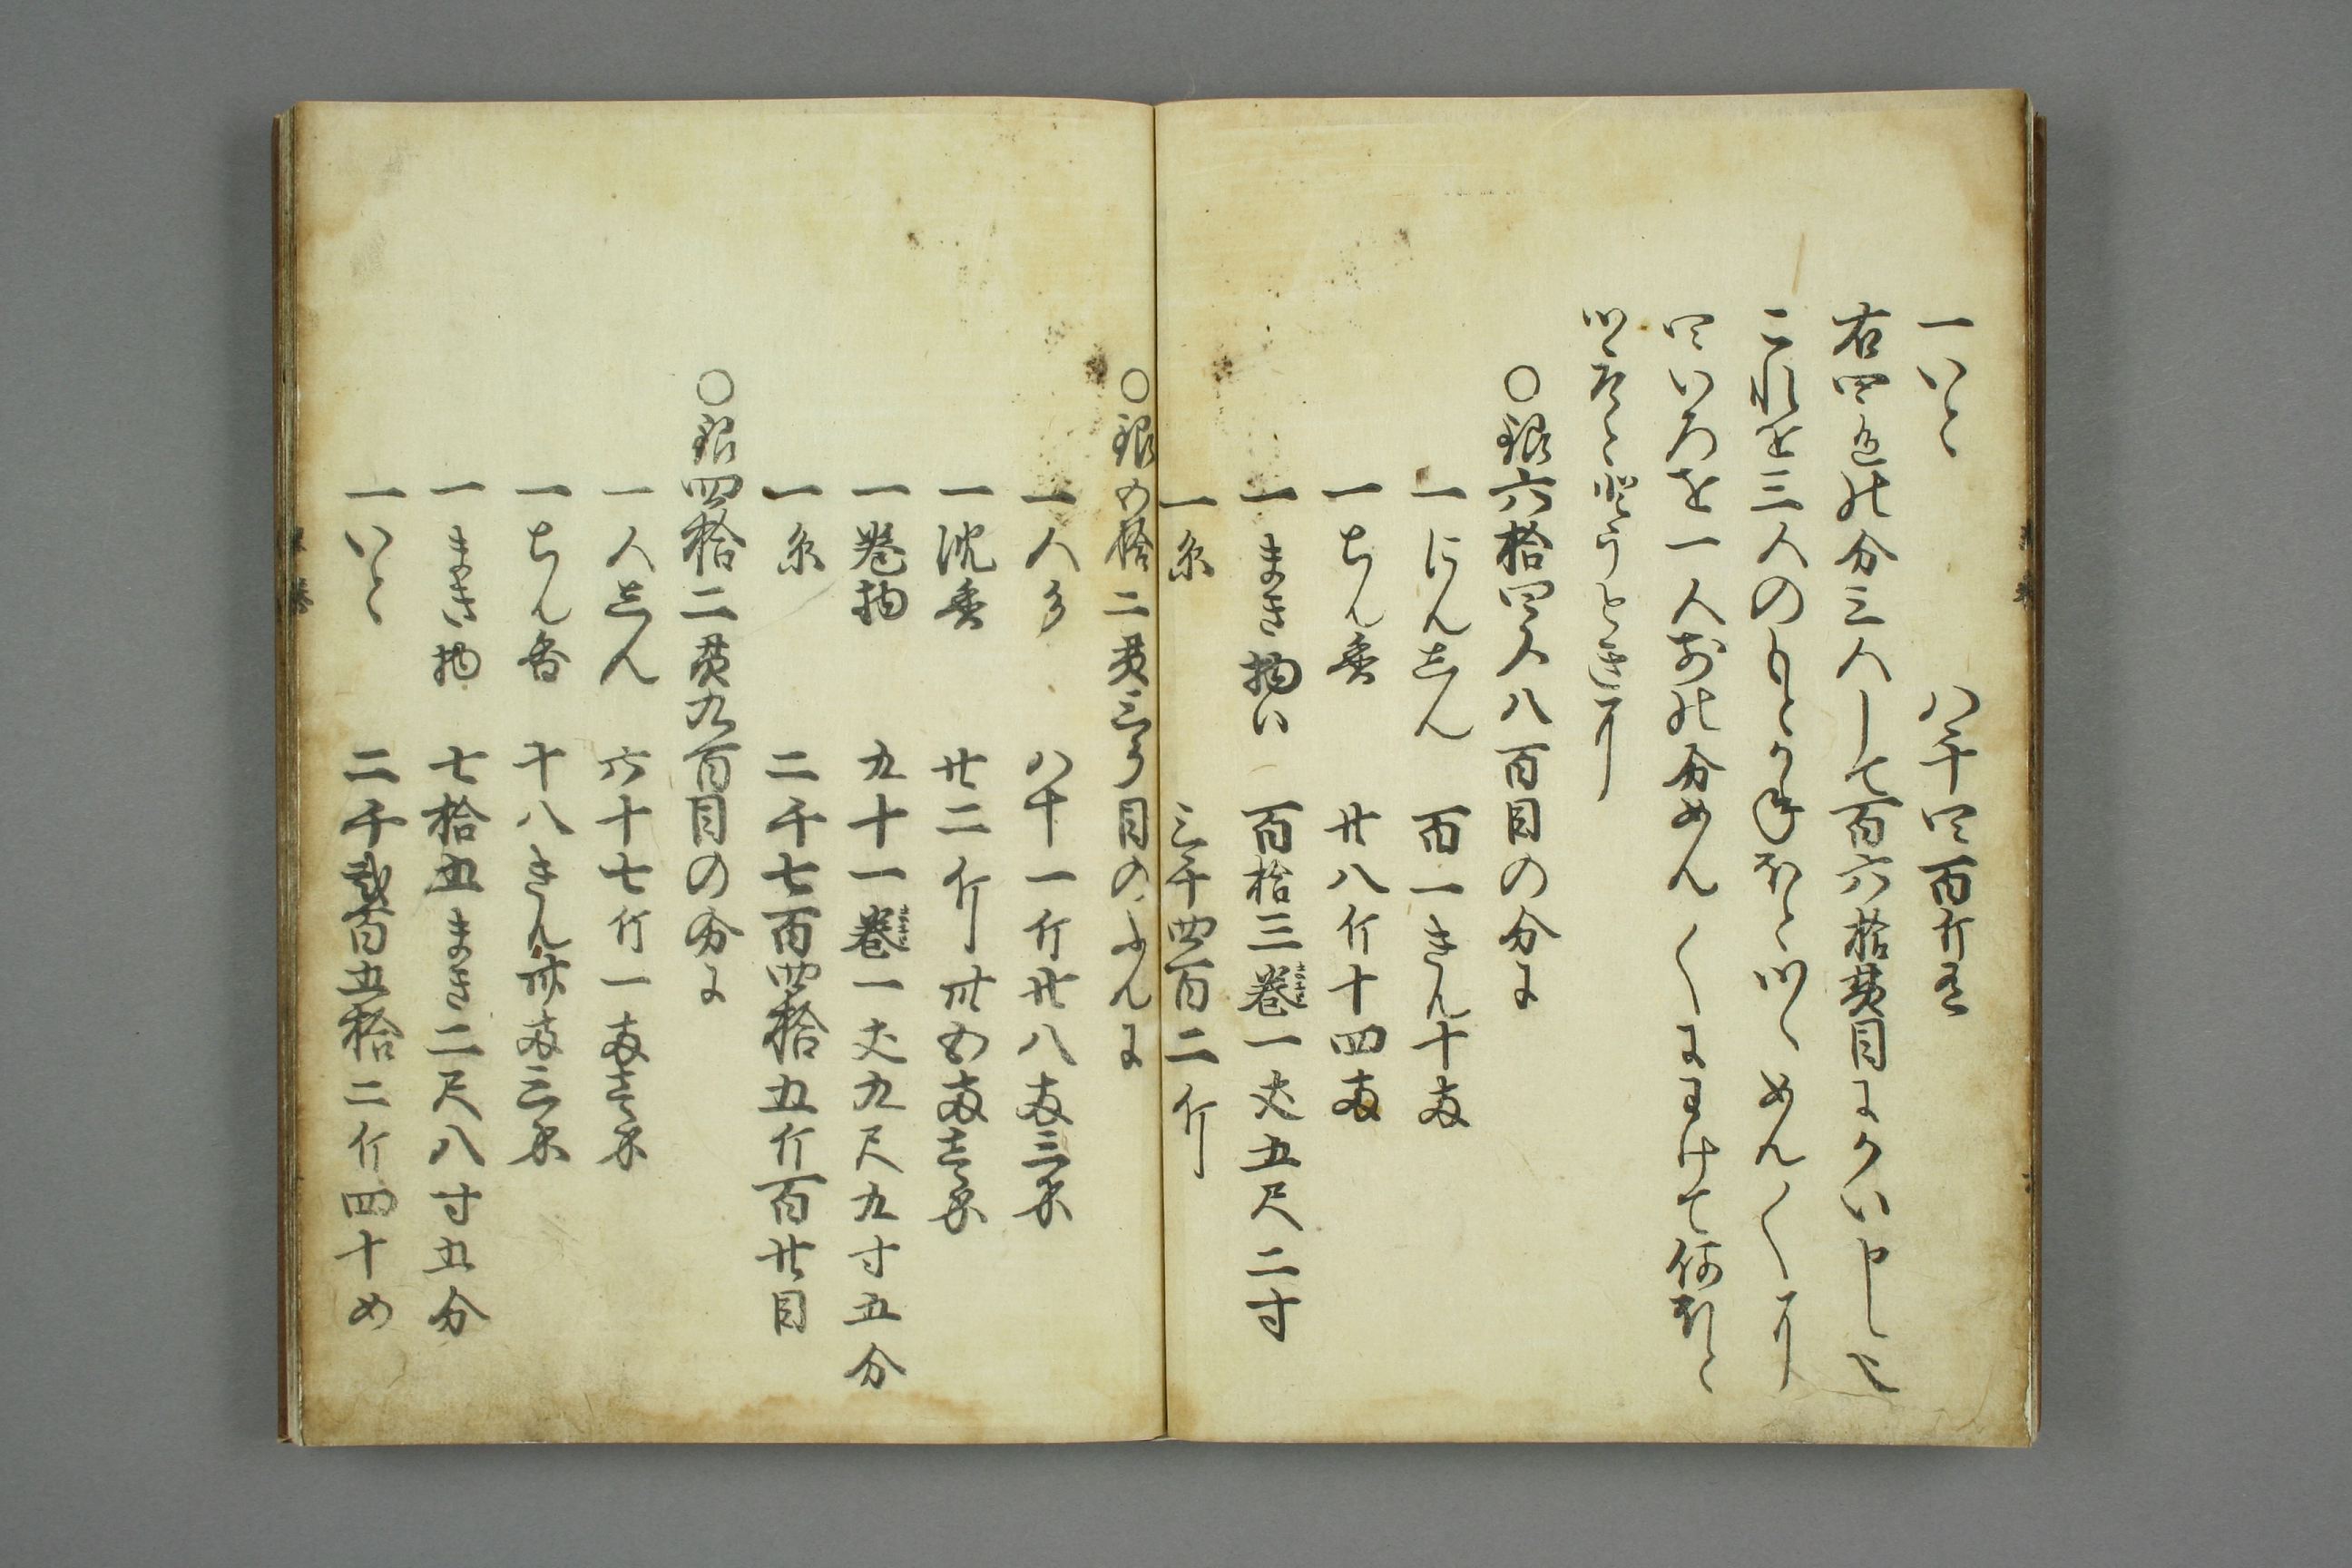 一いと　八千四百斤有
右四色の分三人して百六拾貫目にかい申した
これを三人のもとかねほとつゝめん〳〵に
四いろを一人まへの分めん〳〵にわけて何ほと
つゝそととうときに
○銀六拾四メ八百目の分に
一にんしん　百一きん十両
一ちん香　廿八斤十四両
一まき物い　百拾三巻一丈五尺二寸
一糸　三千四百二斤
○銀五拾二貫三百目のふんに
一人参　八十一斤廿八両三分
一沈香　廿二斤卅五両壱分
一巻物　九十一巻一丈九尺九寸五分
一糸　二千七百四拾五斤百廿目
○銀四拾二貫九百目の分に
一人しん　六十七斤一両壱分
一ちん香　十八きん卅両三分
一まき物　七拾五まき二尺八寸五分
一いと　二千弐百五拾二斤四十め